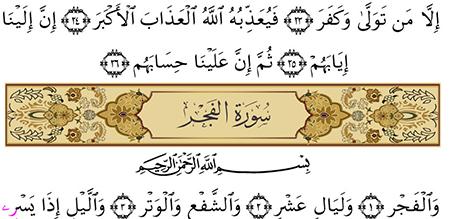 إِلَّا مَن تَوَلَّىٰ وَكَفَرَ ﴿٢٣﴾ فَيُعَذِّبُهُ اللَّهُ الْعَذَابَ الْأَكْبَرَ ﴿٢٤﴾ إِنَّ إِلَيْنَا
إِيَابَهُمْ ﴿٢٥﴾ ثُمَّ إِنَّ عَلَيْنَا حِسَابَهُم ﴿٢٦﴾
سُورَةُ الفَجْرِ
بِسْمِ اللَّهِ الرَّحْمَٰنِ الرَّحِيمِ
وَالْفَجْرِ ﴿١﴾ وَلَيَالٍ عَشْرٍ ﴿٢﴾ وَالشَّفْعِ وَالْوَتْرِ ﴿٣﴾ وَاللَّيْلِ إِذَا يَسْرِ